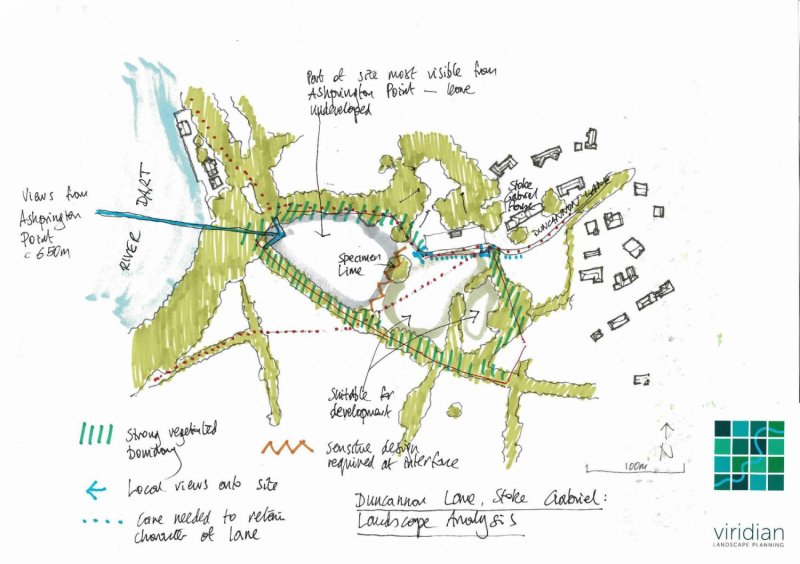 Part of site most visible from
Ashprington Point — leave
undeveloped
Views from
Ashprington
Point
c 650m
RIVER DART
Stoke
Gabriel
House
DUNCANNON LANE
Specimen
Lime
Suitable for
development
Strong vegetated
boundary
Local views onto site
Care needed to retain
character of lane
Sensitive design
required at interface
N
100m
Duncannon Lane, Stoke Gabriel:
Landscape Analysis
viridian
LANDSCAPE PLANNING